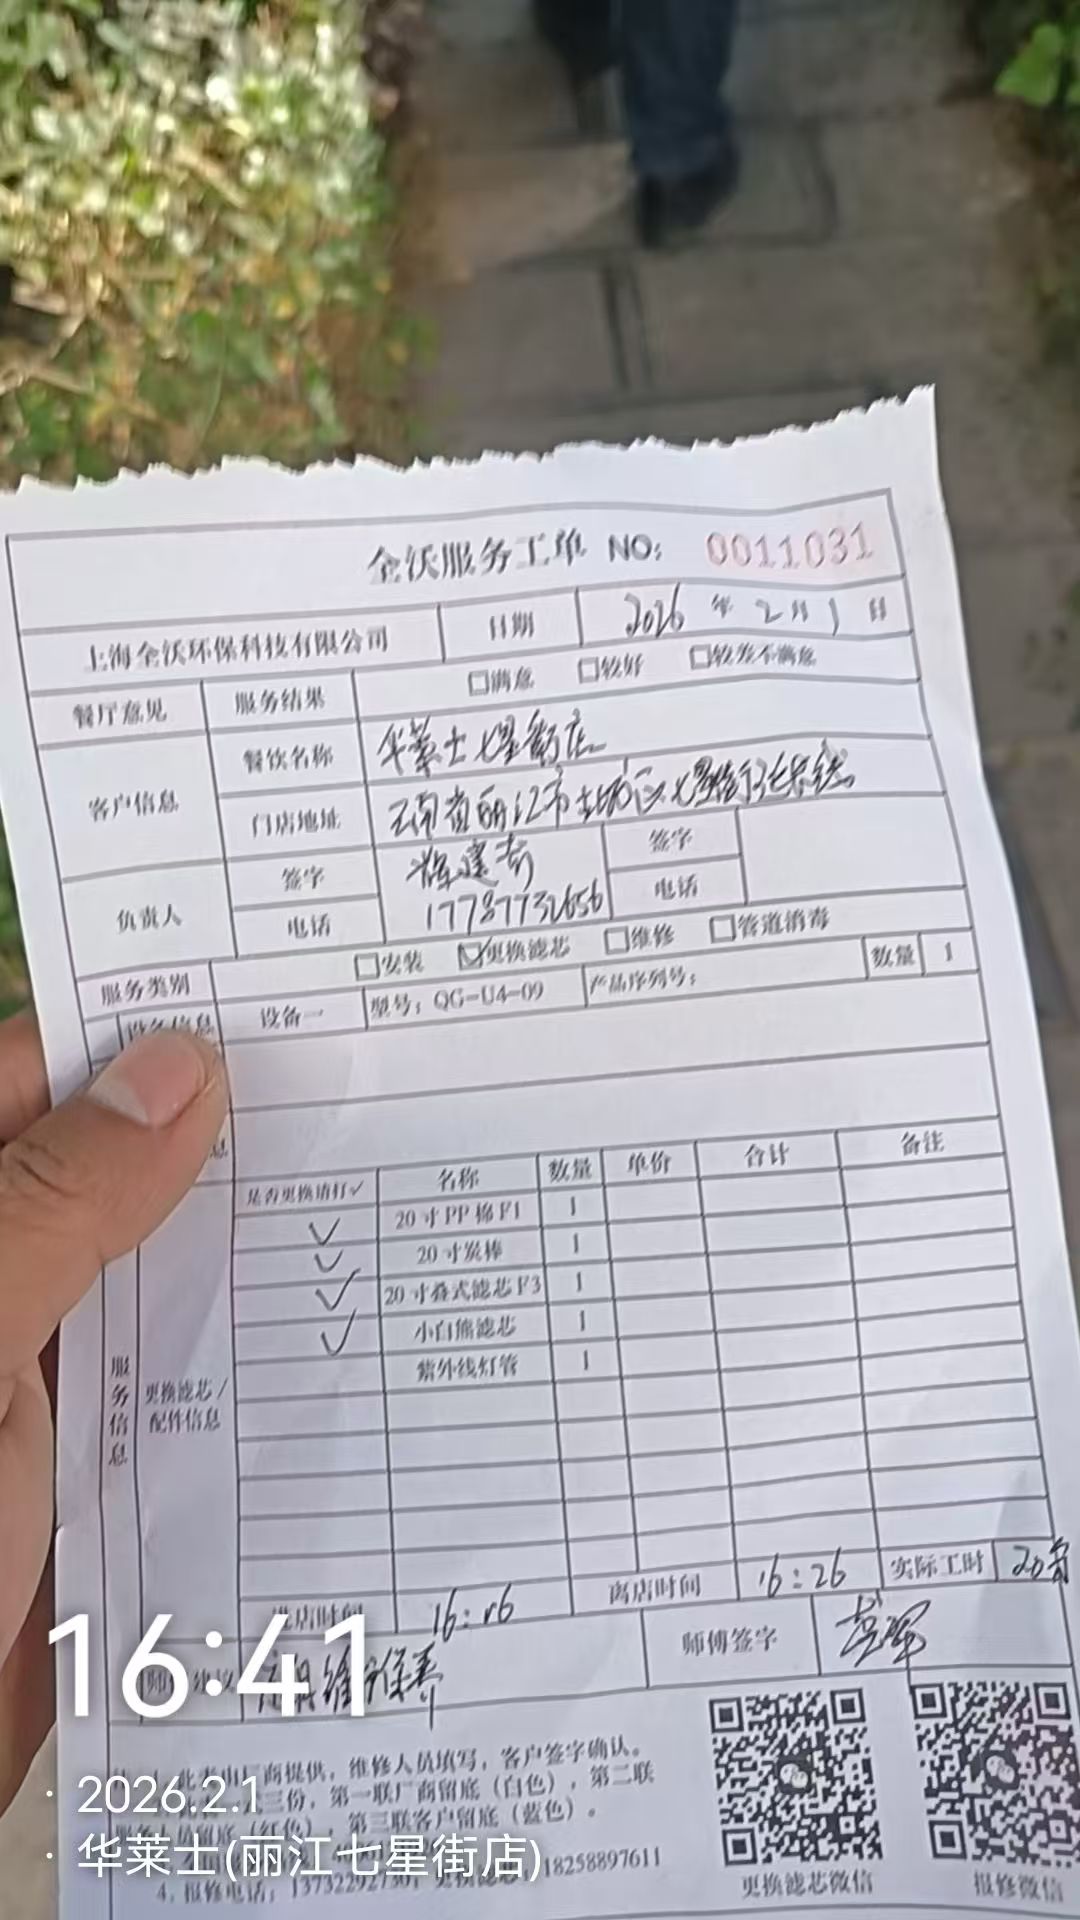 全沃服务工单 NO: 0011031
上海全沃环保科技有限公司 日期 2026 年 2 月 1 日
餐厅意见 服务结果 □满意 □较好 □较差不满意
客户信息 餐饮名称 华莱士七星街店
门店地址 云南省丽江市古城区七星街
负责人 签字 签字
电话 17787732656 电话
服务类别 □安装 ☑更换滤芯 □维修 □管道消毒
设备信息 设备一 型号: QG-U4-09 产品序列号: 数量 1
息
是否更换请打✓ 名称 数量 单价 合计 备注
✓ 20寸PP棉F1 1
✓ 20寸炭棒 1
✓ 20寸叠式滤芯F3 1
✓ 小白熊滤芯 1
紫外线灯管 1
服务信息 更换滤芯/配件信息
进店时间 16:06 离店时间 16:26 实际工时 20分
师傅建议 保养 师傅签字
此表由厂商提供，维修人员填写，客户签字确认。
三份，第一联厂商留底（白色），第二联
服务人员留底（红色），第三联客户留底（蓝色）。
4、报修电话: 13732292730, 更换滤芯 18258897611
更换滤芯微信 报修微信
16:41
· 2026.2.1
· 华莱士(丽江七星街店)